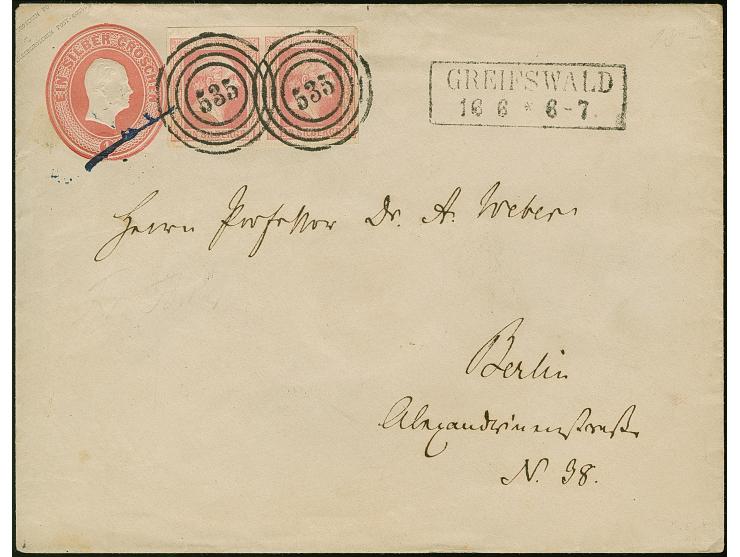 EIN SILBER GROSCHEN
1
535
535
GREIFSWALD
16 6 * 6-7.
Herrn Professor Dr. A. Weber
Berlin
Alexandrinenstraße
N. 38.